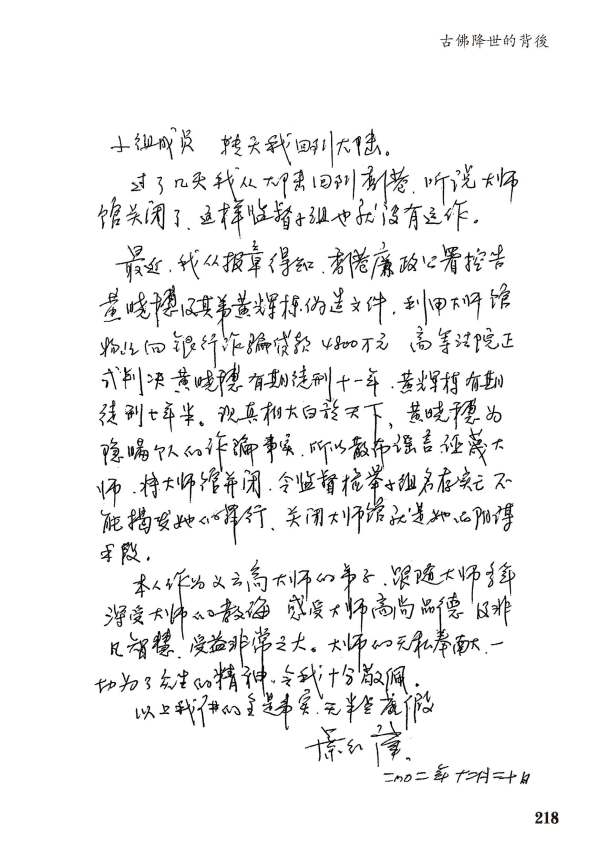 古佛降世的背後
小组成员 转天我回到大陆。
过了几天我从大陆回到香港，听说大师
馆关闭了，这样监督小组也就没有运作。
最近，我从报章得知，香港廉政公署控告
黄晓穗及其弟黄辉栋伪造文件，利用大师馆
物业向银行诈骗贷款4800万元 高等法院正
式判决黄晓穗有期徒刑十一年，黄辉栋有期
徒刑七年半。现真相大白于天下，黄晓穗为
隐瞒个人的诈骗事实，所以散布谣言诬蔑大
师，将大师馆关闭，令监督检举小组名存实亡不
能揭发她的罪行，关闭大师馆就是她的阴谋
手段。
本人作为义云高大师的弟子，跟随大师多年
深受大师的教诲 感受大师高尚品德及非
凡智慧，受益非常之大。大师的无私奉献，一
切为了众生的精神，令我十分敬佩。
以上我讲的全是事实，无半点虚假
二〇〇二年十二月二十日
218